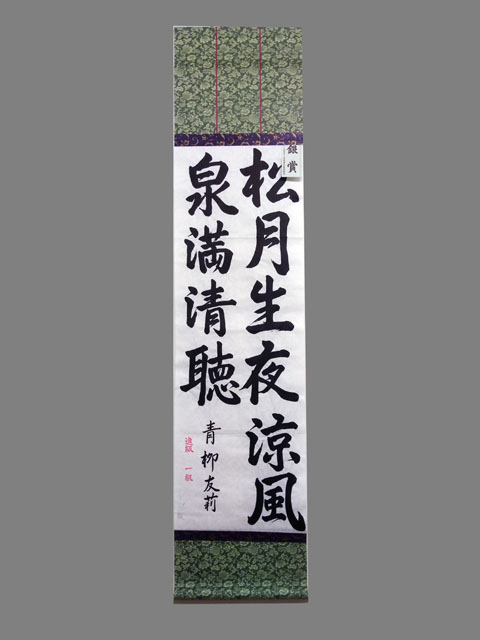 銀賞
松月生夜涼風
泉満清聴
青柳友莉
進級 一級